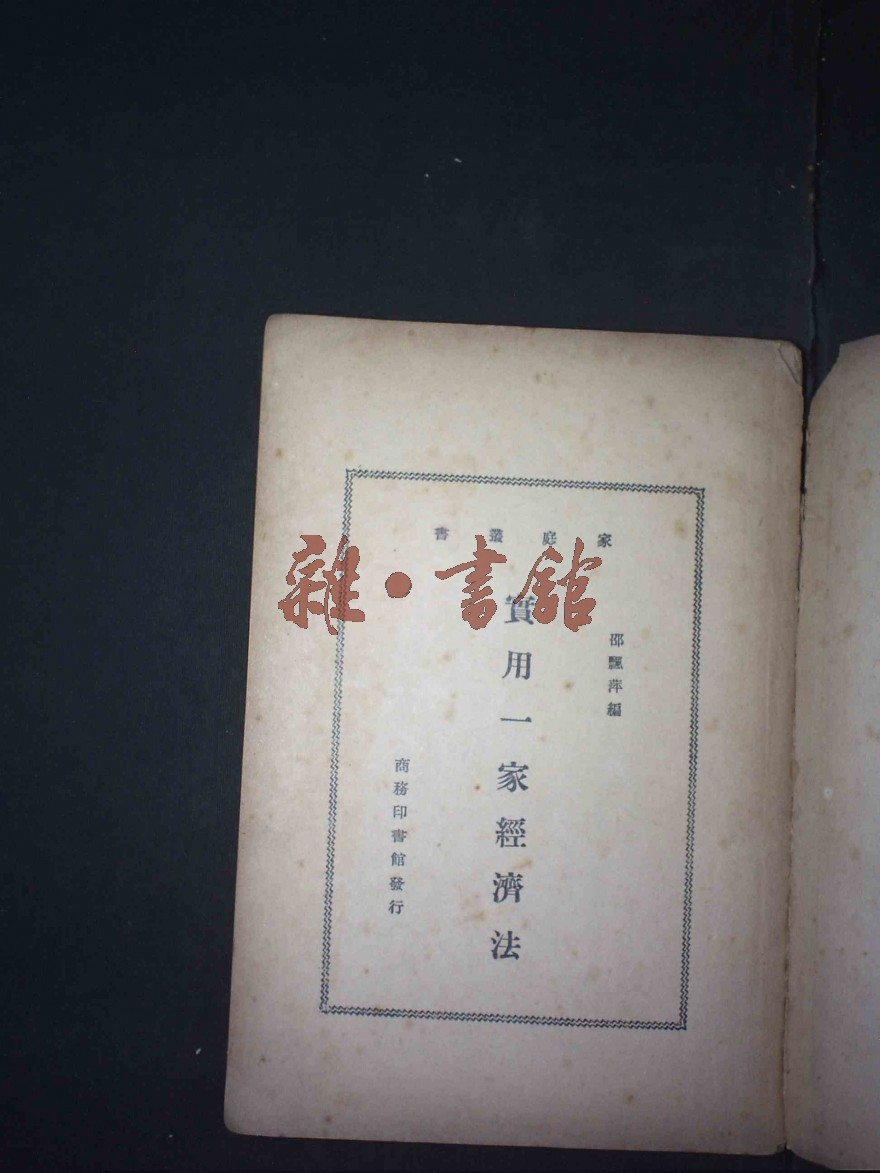 家庭叢書
邵飄萍編
實用一家經濟法
商務印書館發行
雜·書館